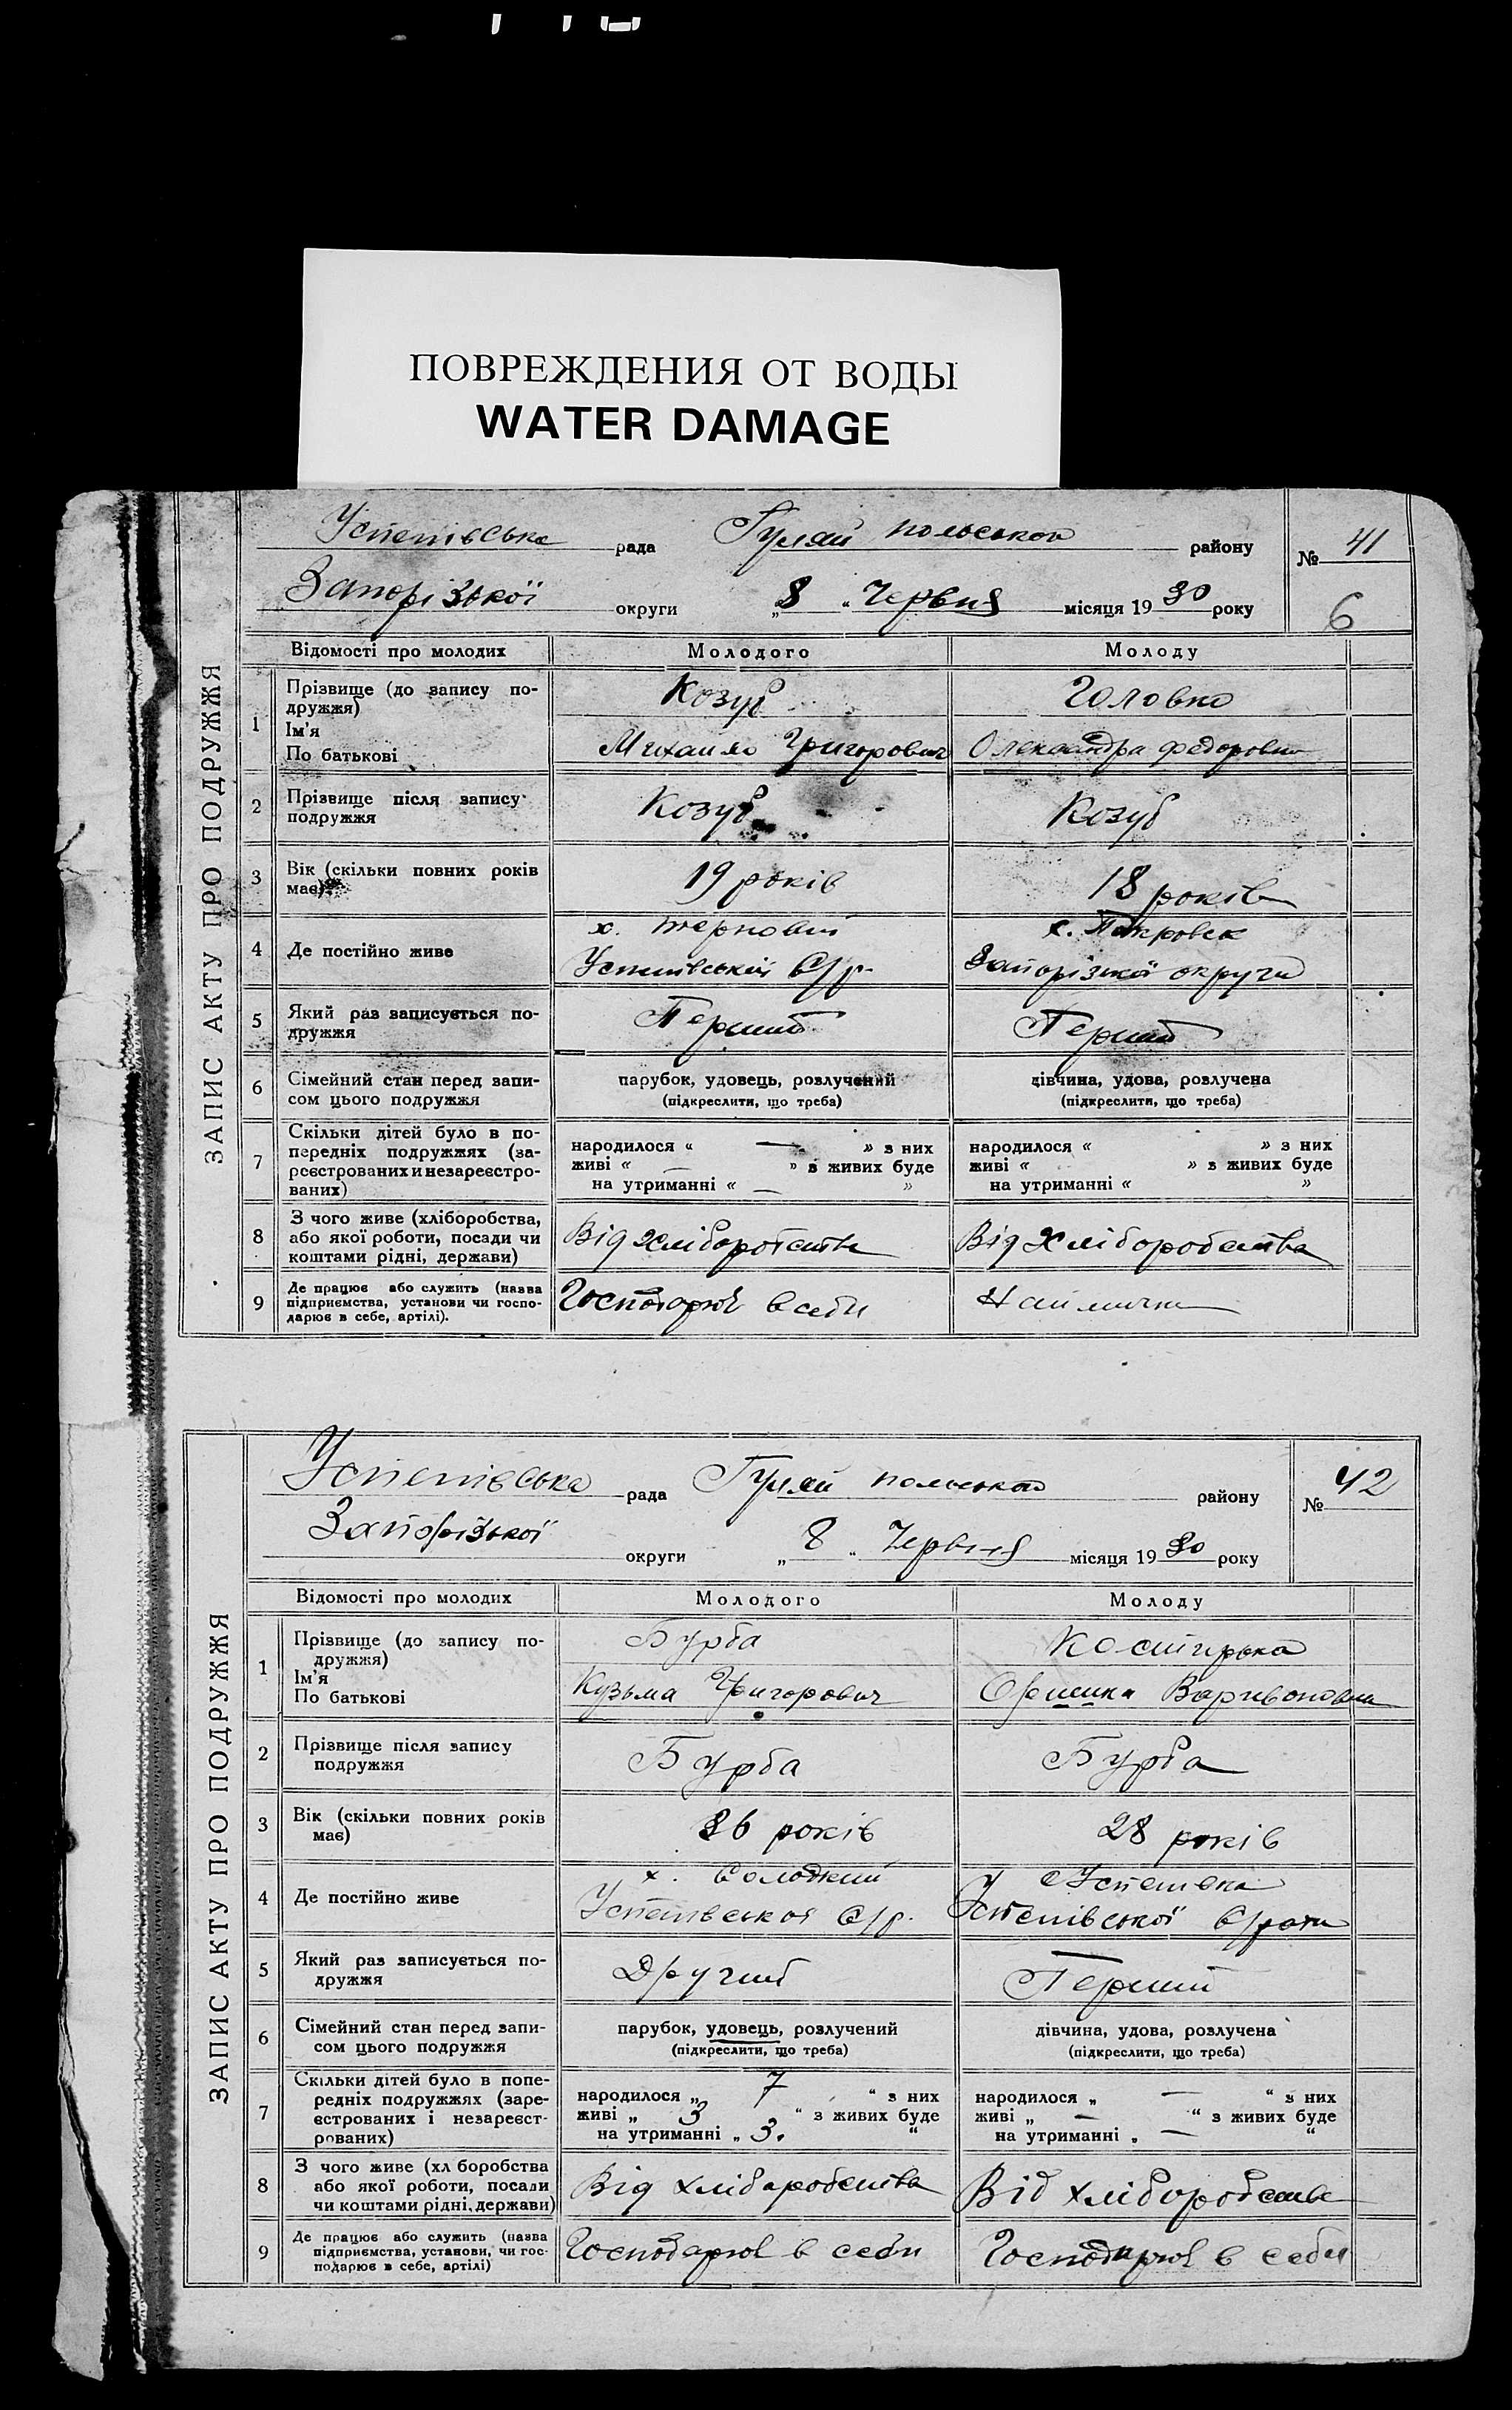 ПОВРЕЖДЕНИЯ ОТ ВОДЫ
WATER DAMAGE
ЗАПИС АКТУ ПРО ПОДРУЖЖЯ
Успенівська рада Гуляй польської району № 41
Запорізької округи „8 “ Червня місяця 1930 року 6
Відомості про молодих Молодого Молоду
1 Прізвище (до запису по-
дружжя) Козуб Головко
Ім'я
По батькові Михайло Григорович Олександра Федоровна
2 Прізвище після запису
подружжя Козуб Козуб
3 Вік (скільки повних років
має) 19 років 18 років
4 Де постійно живе х. Терновий х. Покровск
Успенівської С/р. Запорізької округи
5 Який раз записується по-
дружжя Перший Перший
6 Сімейний стан перед запи- парубок, удовець, розлучений дівчина, удова, розлучена
сом цього подружжя (підкреслити, що треба) (підкреслити, що треба)
7 Скільки дітей було в по-
передніх подружжях (за- народилося « — » з них народилося « » з них
реєстрованих и незареєстро- живі « — » з живих буде живі « » з живих буде
ваних) на утриманні « — » на утриманні « »
8 З чого живе (хліборобства,
або якої роботи, посади чи Від хліборобства Від Хліборобства
коштами рідні, держави)
9 Де працює або служить (назва
підприємства, установи чи госпо- Господарює в себи Наймичка
дарює в себе, артілі).
ЗАПИС АКТУ ПРО ПОДРУЖЖЯ
Успенівська рада Гуляй польської району № 42
Запорізької округи „ 8 “ Червня місяця 1930 року
Відомості про молодих Молодого Молоду
1 Прізвище (до запису по-
дружжя) Бурба
Ім'я
По батькові Кузьма Григорович Оришка
2 Прізвище після запису
подружжя Бурба Бурба
3 Вік (скільки повних років
має) 36 років 28 років
4 Де постійно живе х. Солодкий У с Успенівка
Успенівської С/р. Успенівської С/ради
5 Який раз записується по-
дружжя Другий Перший
6 Сімейний стан перед запи- парубок, удовець, розлучений дівчина, удова, розлучена
сом цього подружжя (підкреслити, що треба) (підкреслити, що треба)
7 Скільки дітей було в попе-
редніх подружжях (заре- народилося „ 7 “ з них народилося „ — “ з них
єстрованих і незареєст- живі „ 3 “ з живих буде живі „ — “ з живих буде
рованих) на утриманні „ 3. “ на утриманні „ — “
8 З чого живе (хл боробства
або якої роботи, посади Від хліборобства Від хліборобства
чи коштами рідні, держави)
9 Де працює або служить (назва
підприємства, установи, чи гос- Господарює в себи Господарює в себи
подарює в себе, артілі)